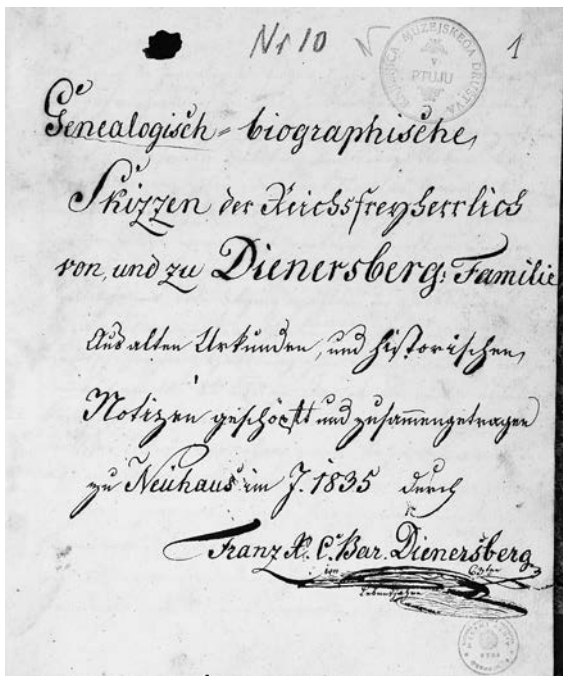 Nr 10
1
KNJIŽNICA MUZEJSKEGA DRUŠTVA
V
PTUJU
Genealogisch-biographische,
Skizzen der Reichsfreyherrlich
von, und zu Dienersberg: Familie
Aus alten Urkunden, und historischen,
Notizen geschöpft und zusammengetragen
zu Neuhaus im J. 1835 durch
Franz X. C. Bar. Dienersberg
im
Lebensjahre